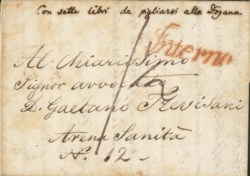 Con sette libri da pigliarsi alla Dogana
Interno
Al Chiarissimo
Signor avvocato
D. Gaetano Trevisani
Arena Sanità
N.° 12.